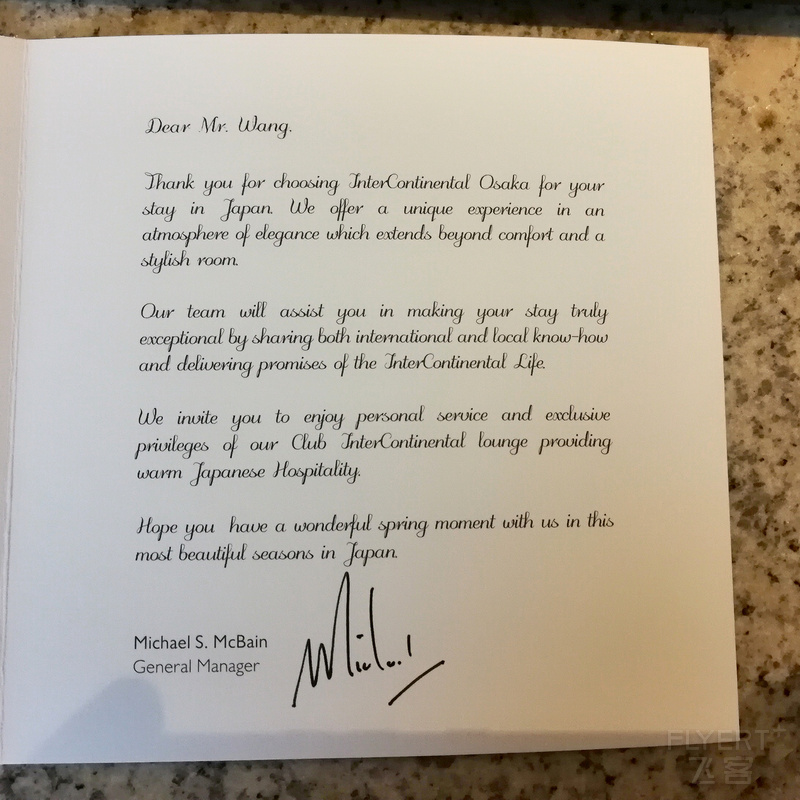 Dear Mr. Wang.
Thank you for choosing InterContinental Osaka for your
stay in Japan. We offer a unique experience in an
atmosphere of elegance which extends beyond comfort and a
stylish room.
Our team will assist you in making your stay truly
exceptional by sharing both international and local know-how
and delivering promises of the InterContinental Life.
We invite you to enjoy personal service and exclusive
privileges of our Club InterContinental lounge providing
warm Japanese Hospitality.
Hope you have a wonderful spring moment with us in this
most beautiful seasons in Japan.
Michael S. McBain
General Manager
Michael
FLYERT
飞客